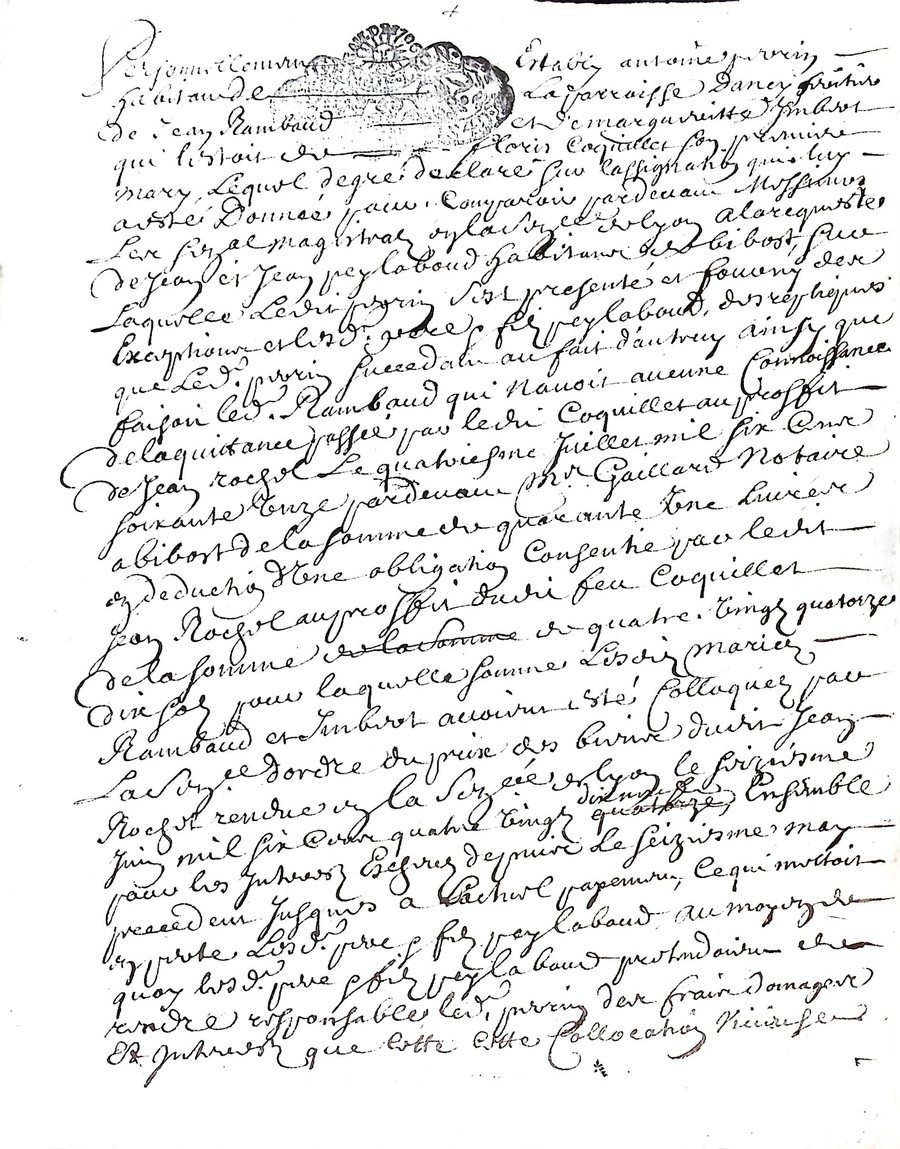 Personnellemen Estably antoine perrin
habitan de La parroisse Dancy heritier
de Jean Rambaud et de margueritte Imbert
qui lestoit de floris Coquillet son premier
mary, Lequel degré declare sur lassignation qui luy
a esté Donnée pour Comparoir pardevant Messieurs
Les magistratz en la de lyon a la requeste
de Jean et Jean peylaboud habitans de bibost, sur
Laquelle Ledit perrin sest presenté et fourny des
Exceptions et lesd. pere & filz peylaboud, des repliques
que Led. perrin succedant au fait dautruy ainsy que
faisoit led. Rambaud qui navoit aucune Connoissance
de la quittance passée par ledit Coquillet au proffit
de Jean rochet Le quatriesme Juillet mil six Cens
soixante Unze pardevant Mr Gaillard Notaire
a bibost de la somme de quarante Une Livres
en deduction d'Une obligation Consentie par ledit
Jean Rochet au proffit dudit feu Coquillet
de la somme de la somme de quatre Vingt quatorze
dix solz pour laquelle somme Lesditz mariez
Rambaud et Imbert avoient esté Colloquez par
La Dordre du prix des biens dudit Jean
Rochet rendue en la de lyon le seiziesme
Juin mil six Cens quatre Vingt quatorze, Ensemble
pour les Interestz Escheuz depuis Le seiziesme may
precedent Jusques a Lactuel payement, Ce qui mettoit
en perte Lesd. pere & filz peylaboud au moyen de
quoy lesd. pere & filz peylaboud pretendoient de
rendre responsable led. perrin des frais domages
Et Interestz que Cette Cette Collocation